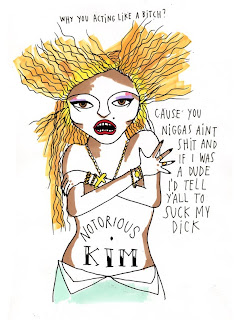 WHY YOU ACTING LIKE A BITCH?
CAUSE' YOU
NIGGAS AINT
SHIT AND
IF I WAS
A DUDE
I'D TELL
Y'ALL TO
SUCK MY
DICK
NOTORIOUS
KIM